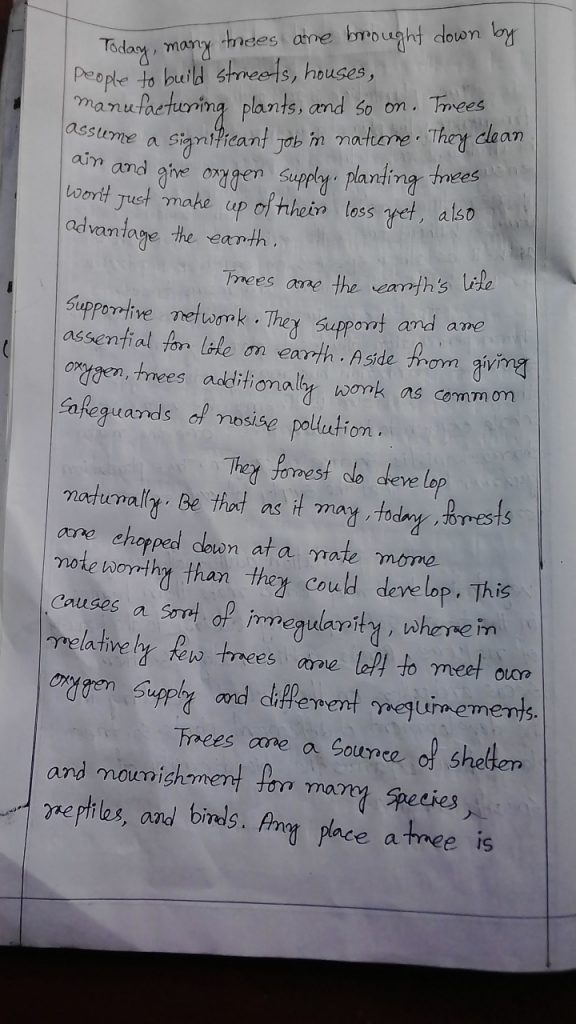 Today, many trees are brought down by
people to build streets, houses,
manufacturing plants, and so on. Trees
assume a significant job in nature. They clean
air and give oxygen supply. planting trees
won't just make up of their loss yet, also
advantage the earth.
Trees are the earth's life
supportive network. They support and are
assential for life on earth. Aside from giving
oxygen, trees additionally work as common
safeguards of nosise pollution.
They forrest do develop
naturally. Be that as it may, today, forrests
are chopped down at a rate more
noteworthy than they could develop. This
causes a sort of irregularity, wherein
relatively few trees are left to meet our
oxygen supply and different requirements.
Trees are a source of shelter
and nourishment for many species,
reptiles, and birds. Any place a tree is